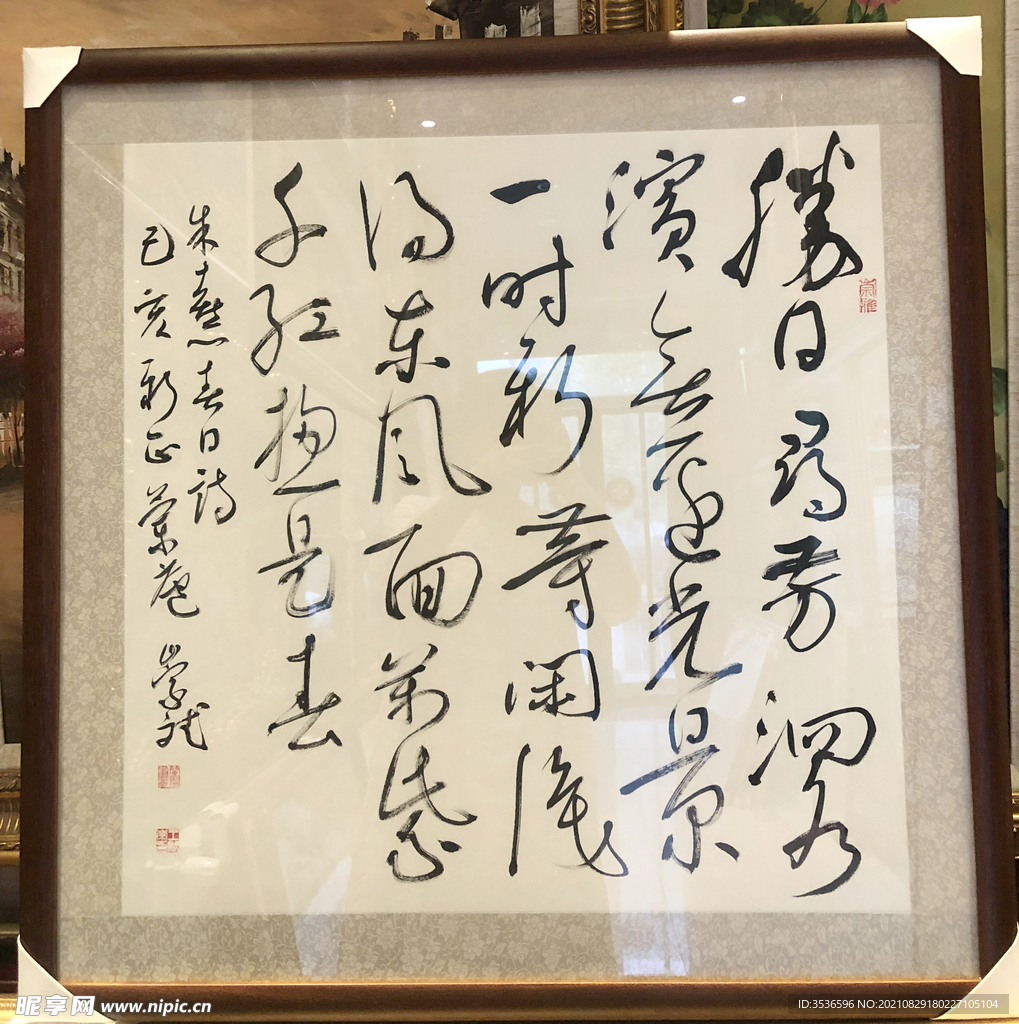 勝日尋芳泗水
濱無邊光景
一时新等閑識
得東風面萬紫
千紅總是春
朱熹春日詩
己亥新正蘭庵
昵享网 www.nipic.cn
ID:3536596 NO:20210829180227105104